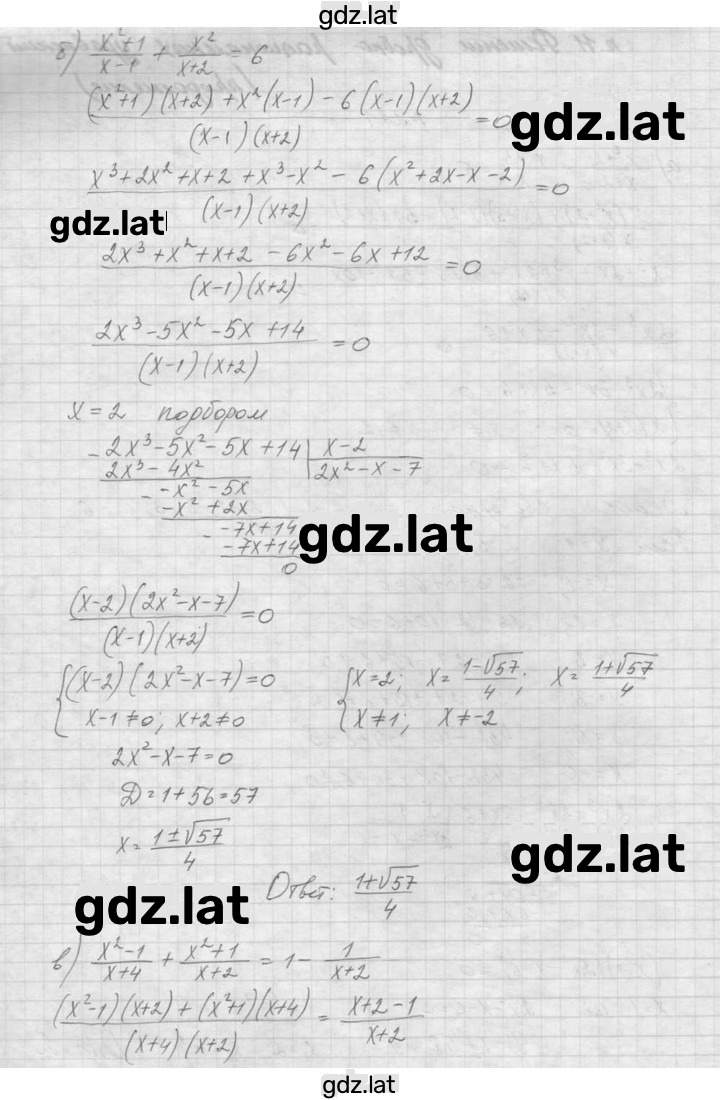 gdz.lat
б) (x²+1)/(x-1) + x²/(x+2) = 6
((x²+1)(x+2) + x²(x-1) - 6(x-1)(x+2))/((x-1)(x+2)) = 0
gdz.lat
(x³+2x²+x+2+x³-x² - 6(x²+2x-x-2))/((x-1)(x+2)) = 0
gdz.lat
(2x³+x²+x+2-6x²-6x+12)/((x-1)(x+2)) = 0
(2x³-5x²-5x+14)/((x-1)(x+2)) = 0
x=2 подбором
-2x³-5x²-5x+14 | x-2
2x³-4x² | 2x²-x-7
- -x²-5x
-x²+2x
- -7x+14
-7x+14
0
gdz.lat
((x-2)(2x²-x-7))/((x-1)(x+2)) = 0
{(x-2)(2x²-x-7)=0 {x=2; x=(1-√57)/4; x=(1+√57)/4
x-1≠0; x+2≠0 x≠1; x≠-2
2x²-x-7=0
D=1+56=57
x=(1±√57)/4
gdz.lat
Ответ: (1+√57)/4
gdz.lat
в) (x²-1)/(x+4) + (x²+1)/(x+2) = 1 - 1/(x+2)
((x²-1)(x+2)+(x²+1)(x+4))/((x+4)(x+2)) = (x+2-1)/(x+2)
gdz.lat